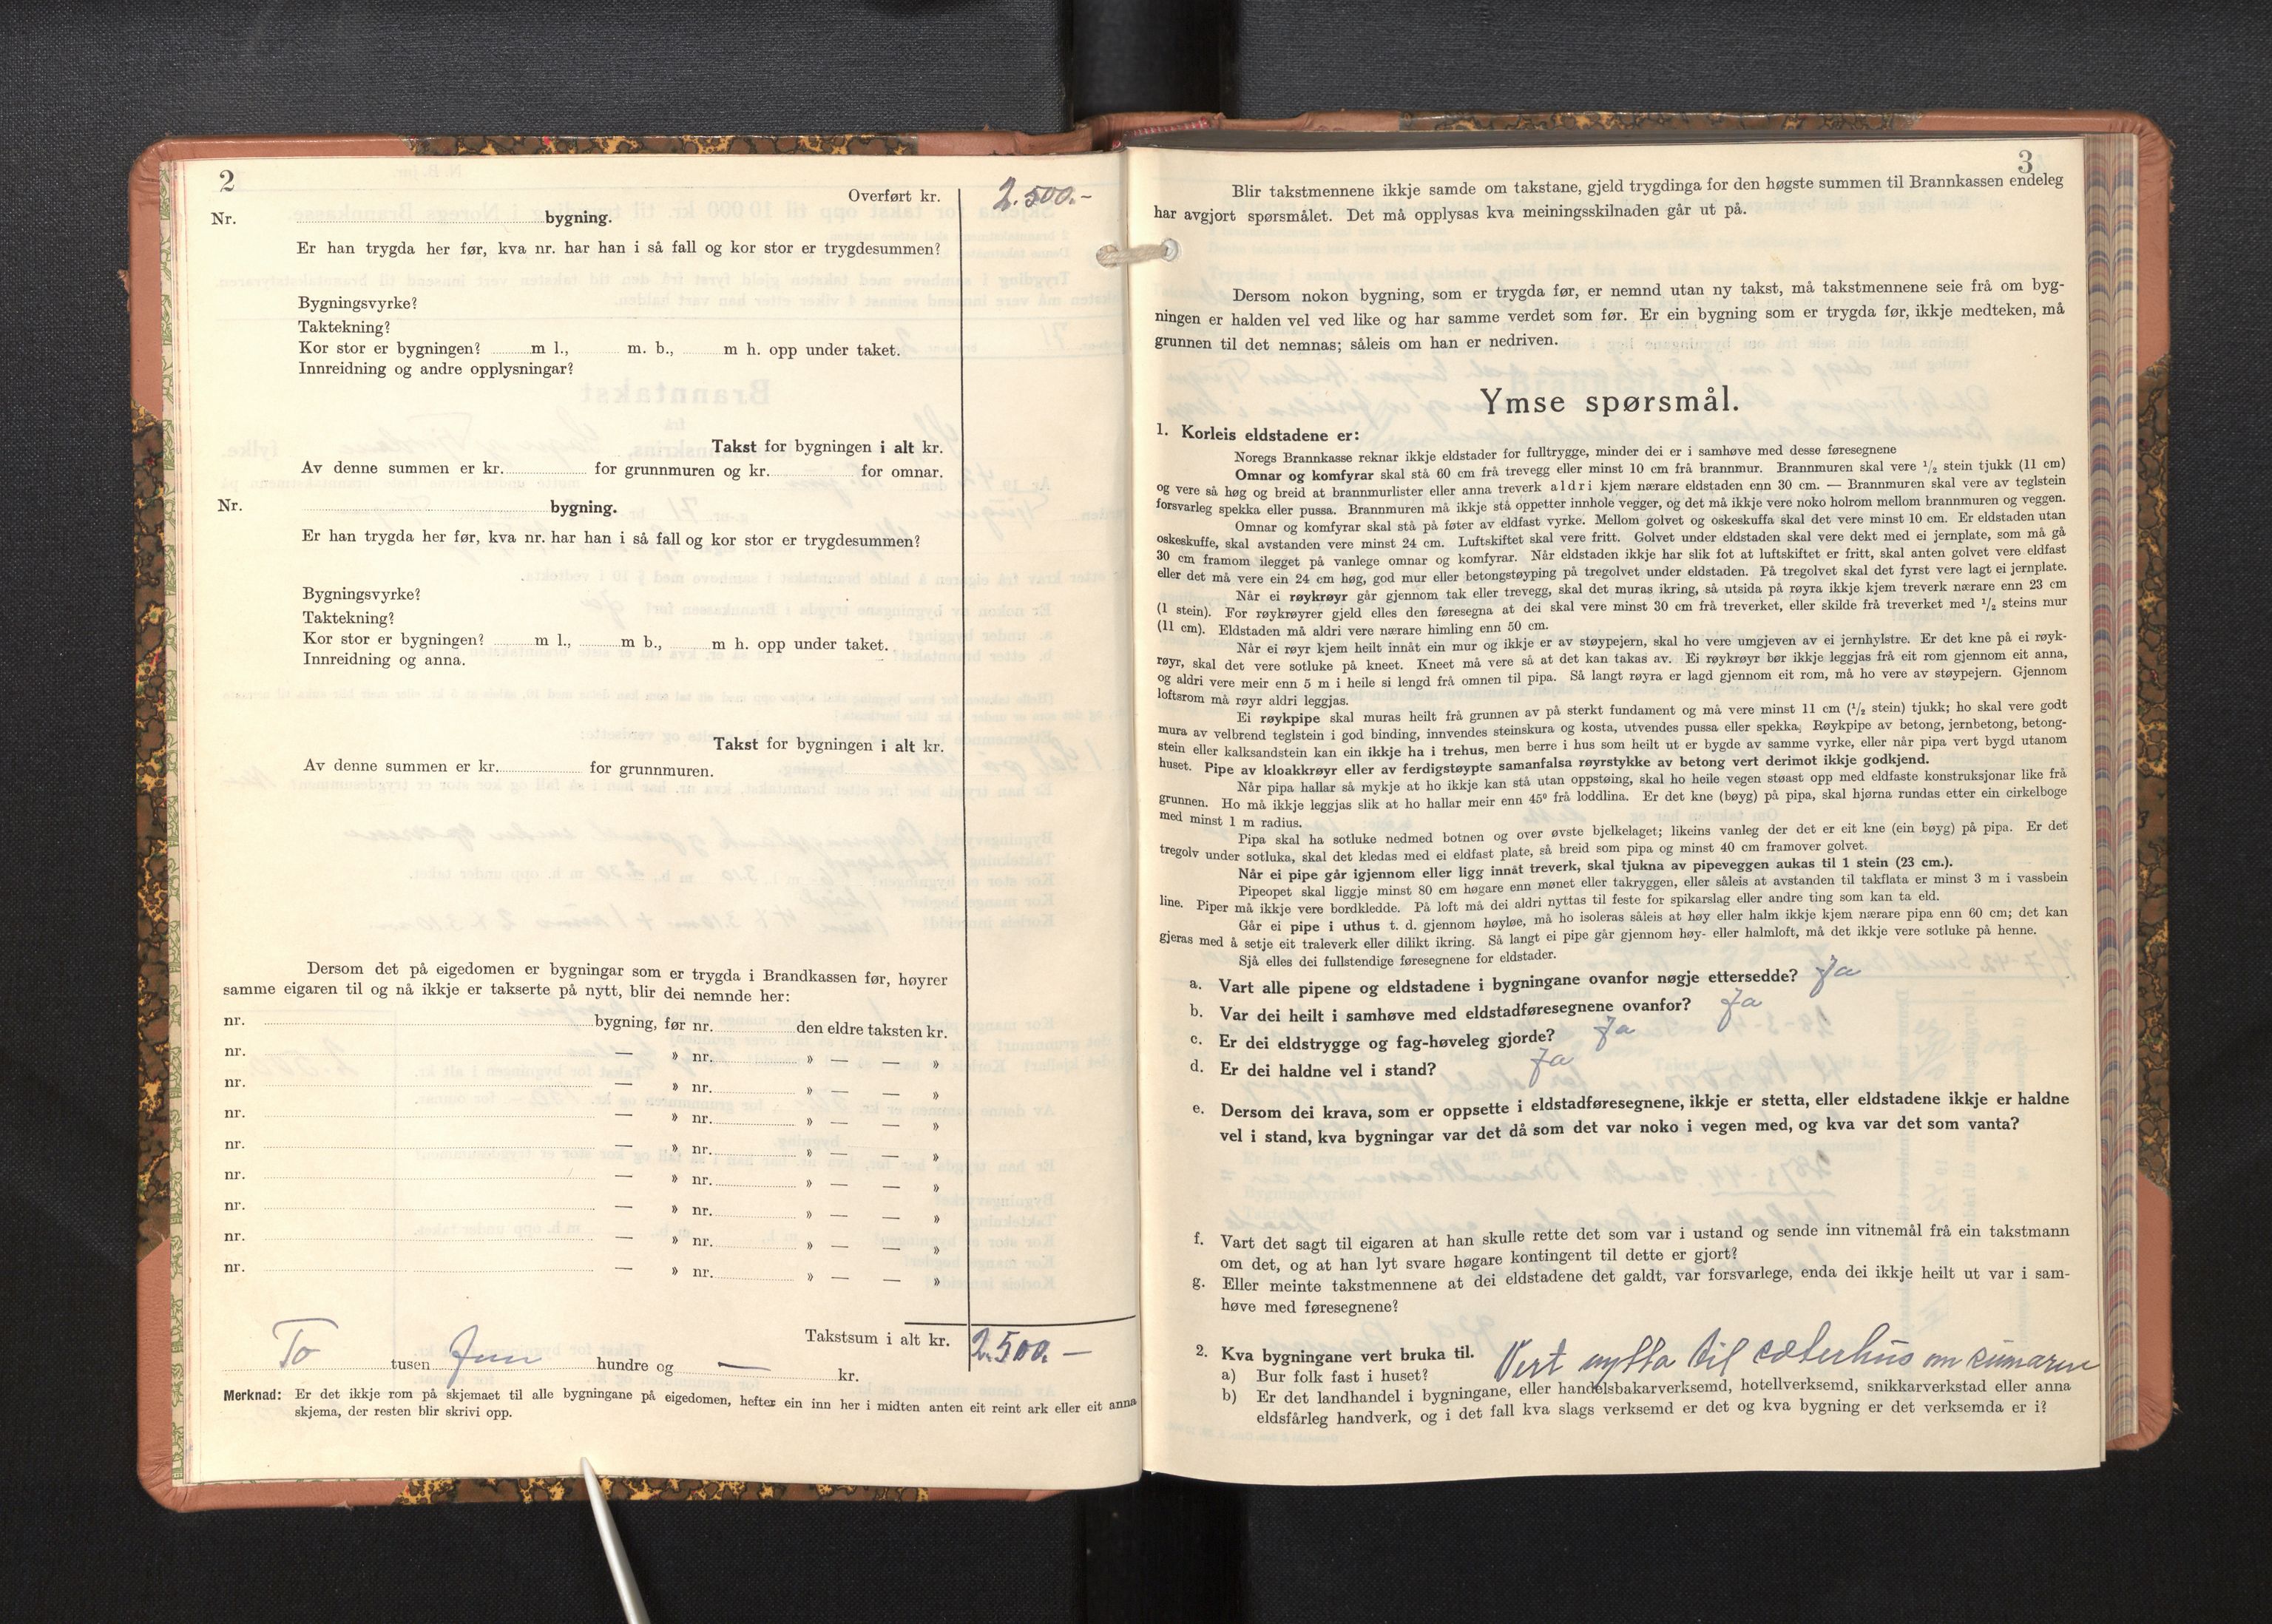 2
Overført kr. 2.500.-
Nr. bygning.
Er han trygda her før, kva nr. har han i så fall og kor stor er trygdesummen?
Bygningsvyrke?
Taktekning?
Kor stor er bygningen? m l., m. b., m h. opp under taket.
Innreidning og andre opplysningar?
Takst for bygningen i alt kr.
Av denne summen er kr. for grunnmuren og kr. for omnar.
Nr. bygning.
Er han trygda her før, kva nr. har han i så fall og kor stor er trygdesummen?
Bygningsvyrke?
Taktekning?
Kor stor er bygningen? m l., m b., m h. opp under taket.
Innreidning og anna.
Takst for bygningen i alt kr.
Av denne summen er kr. for grunnmuren.
Dersom det på eigedomen er bygningar som er trygda i Brandkassen før, høyrer
samme eigaren til og nå ikkje er takserte på nytt, blir dei nemnde her:
nr. bygning, før nr. den eldre taksten kr.
nr. — » nr. » — — »
nr. — » nr. » — — »
nr. — » nr. » — — »
nr. — » nr. » — — »
nr. — » nr. » — — »
nr. — » nr. » — — »
nr. — » nr. » — — »
nr. — » nr. » — — »
Takstsum i alt kr. 2.500.—
To tusen fem hundre og — kr.
Merknad: Er det ikkje rom på skjemaet til alle bygningane på eigedomen, hefter ein inn her i midten anten eit reint ark eller eit anna
skjema, der resten blir skrivi opp.
3
Blir takstmennene ikkje samde om takstane, gjeld trygdinga for den høgste summen til Brannkassen endeleg
har avgjort spørsmålet. Det må opplysas kva meiningsskilnaden går ut på.
Dersom nokon bygning, som er trygda før, er nemnd utan ny takst, må takstmennene seie frå om byg-
ningen er halden vel ved like og har samme verdet som før. Er ein bygning som er trygda før, ikkje medteken, må
grunnen til det nemnas; såleis om han er nedriven.
Ymse spørsmål.
1. Korleis eldstadene er:
Noregs Brannkasse reknar ikkje eldstader for fulltrygge, minder dei er i samhøve med desse føresegnene
Omnar og komfyrar skal stå 60 cm frå trevegg eller minst 10 cm frå brannmur. Brannmuren skal vere 1/2 stein tjukk (11 cm)
og vere så høg og breid at brannmurlister eller anna treverk aldri kjem nærare eldstaden enn 30 cm. — Brannmuren skal vere av teglstein
forsvarleg spekka eller pussa. Brannmuren må ikkje stå oppetter innhole vegger, og det må ikkje vere noko holrom mellom brannmuren og veggen.
Omnar og komfyrar skal stå på føter av eldfast vyrke. Mellom golvet og oskeskuffa skal det vere minst 10 cm. Er eldstaden utan
oskeskuffe, skal avstanden vere minst 24 cm. Luftskiftet skal vere fritt. Golvet under eldstaden skal vere dekt med ei jernplate, som må gå
30 cm framom ilegget på vanlege omnar og komfyrar. Når eldstaden ikkje har slik fot at luftskiftet er fritt, skal anten golvet vere eldfast
eller det må vere ein 24 cm høg, god mur eller betongstøyping på tregolvet under eldstaden. På tregolvet skal det fyrst vere lagt ei jernplate.
Når ei røykrøyr går gjennom tak eller trevegg, skal det muras ikring, så utsida på røyra ikkje kjem treverk nærare enn 23 cm
(1 stein). For røykrøyrer gjeld elles den føresegna at dei skal vere minst 30 cm frå treverket, eller skilde frå treverket med 1/2 steins mur
(11 cm). Eldstaden må aldri vere nærare himling enn 50 cm.
Når ei røyr kjem heilt innåt ein mur og ikkje er av støypejern, skal ho vere umgjeven av ei jernhylstre. Er det kne på ei røyk-
røyr, skal det vere sotluke på kneet. Kneet må vere så at det kan takas av. Ei røykrøyr bør ikkje leggjas frå eit rom gjennom eit anna,
og aldri vere meir enn 5 m i heile si lengd frå omnen til pipa. Så langt røyra er lagd gjennom eit rom, må ho vere av støypejern. Gjennom
loftsrom må røyr aldri leggjas.
Ei røykpipe skal muras heilt frå grunnen av på sterkt fundament og må vere minst 11 cm (1/2 stein) tjukk; ho skal vere godt
mura av velbrend teglstein i god binding, innvendes steinskura og kosta, utvendes pussa eller spekka. Røykpipe av betong, jernbetong, betong-
stein eller kalksandstein kan ein ikkje ha i trehus, men berre i hus som heilt ut er bygde av samme vyrke, eller når pipa vert bygd utanom
huset. Pipe av kloakkrøyr eller av ferdigstøypte samanfalsa røyrstykke av betong vert derimot ikkje godkjend.
Når pipa hallar så mykje at ho ikkje kan stå utan oppstøing, skal ho heile vegen støast opp med eldfaste konstruksjonar like frå
grunnen. Ho må ikkje leggjas slik at ho hallar meir enn 45° frå loddlina. Er det kne (bøyg) på pipa, skal hjørna rundas etter ein cirkelboge
med minst 1 m radius.
Pipa skal ha sotluke nedmed botnen og over øvste bjelkelaget; likeins vanleg der det er eit kne (ein bøyg) på pipa. Er det
tregolv under sotluka, skal det kledas med ei eldfast plate, så breid som pipa og minst 40 cm framover golvet.
Når ei pipe går igjennom eller ligg innåt treverk, skal tjukna av pipeveggen aukas til 1 stein (23 cm.).
Pipeopet skal liggje minst 80 cm høgare enn mønet eller takryggen, eller såleis at avstanden til takflata er minst 3 m i vassbein
line. Piper må ikkje vere bordkledde. På loft må dei aldri nyttas til feste for spikarslag eller andre ting som kan ta eld.
Går ei pipe i uthus t. d. gjennom høyløe, må ho isoleras såleis at høy eller halm ikkje kjem nærare pipa enn 60 cm; det kan
gjeras med å setje eit traleverk eller dilikt ikring. Så langt ei pipe går gjennom høy- eller halmloft, må det ikkje vere sotluke på henne.
Sjå elles dei fullstendige føresegnene for eldstader.
a. Vart alle pipene og eldstadene i bygningane ovanfor nøgje ettersedde? Ja
b. Var dei heilt i samhøve med eldstadføresegnene ovanfor? Ja
c. Er dei eldstrygge og fag-høveleg gjorde? Ja
d. Er dei haldne vel i stand? Ja
e. Dersom dei krava, som er oppsette i eldstadføresegnene, ikkje er stetta, eller eldstadene ikkje er haldne
vel i stand, kva bygningar var det då som det var noko i vegen med, og kva var det som vanta?
f. Vart det sagt til eigaren at han skulle rette det som var i ustand og sende inn vitnemål frå ein takstmann
om det, og at han lyt svare høgare kontingent til dette er gjort?
g. Eller meinte takstmennene at dei eldstadene det galdt, var forsvarlege, enda dei ikkje heilt ut var i sam-
høve med føresegnene?
2. Kva bygningane vert bruka til. Vert nytta til sæterhus om sumaren
a) Bur folk fast i huset?
b) Er det landhandel i bygningane, eller handelsbakarverksemd, hotellverksemd, snikkarverkstad eller anna
eldsfårleg handverk, og i det fall kva slags verksemd er det og kva bygning er det verksemda er i?